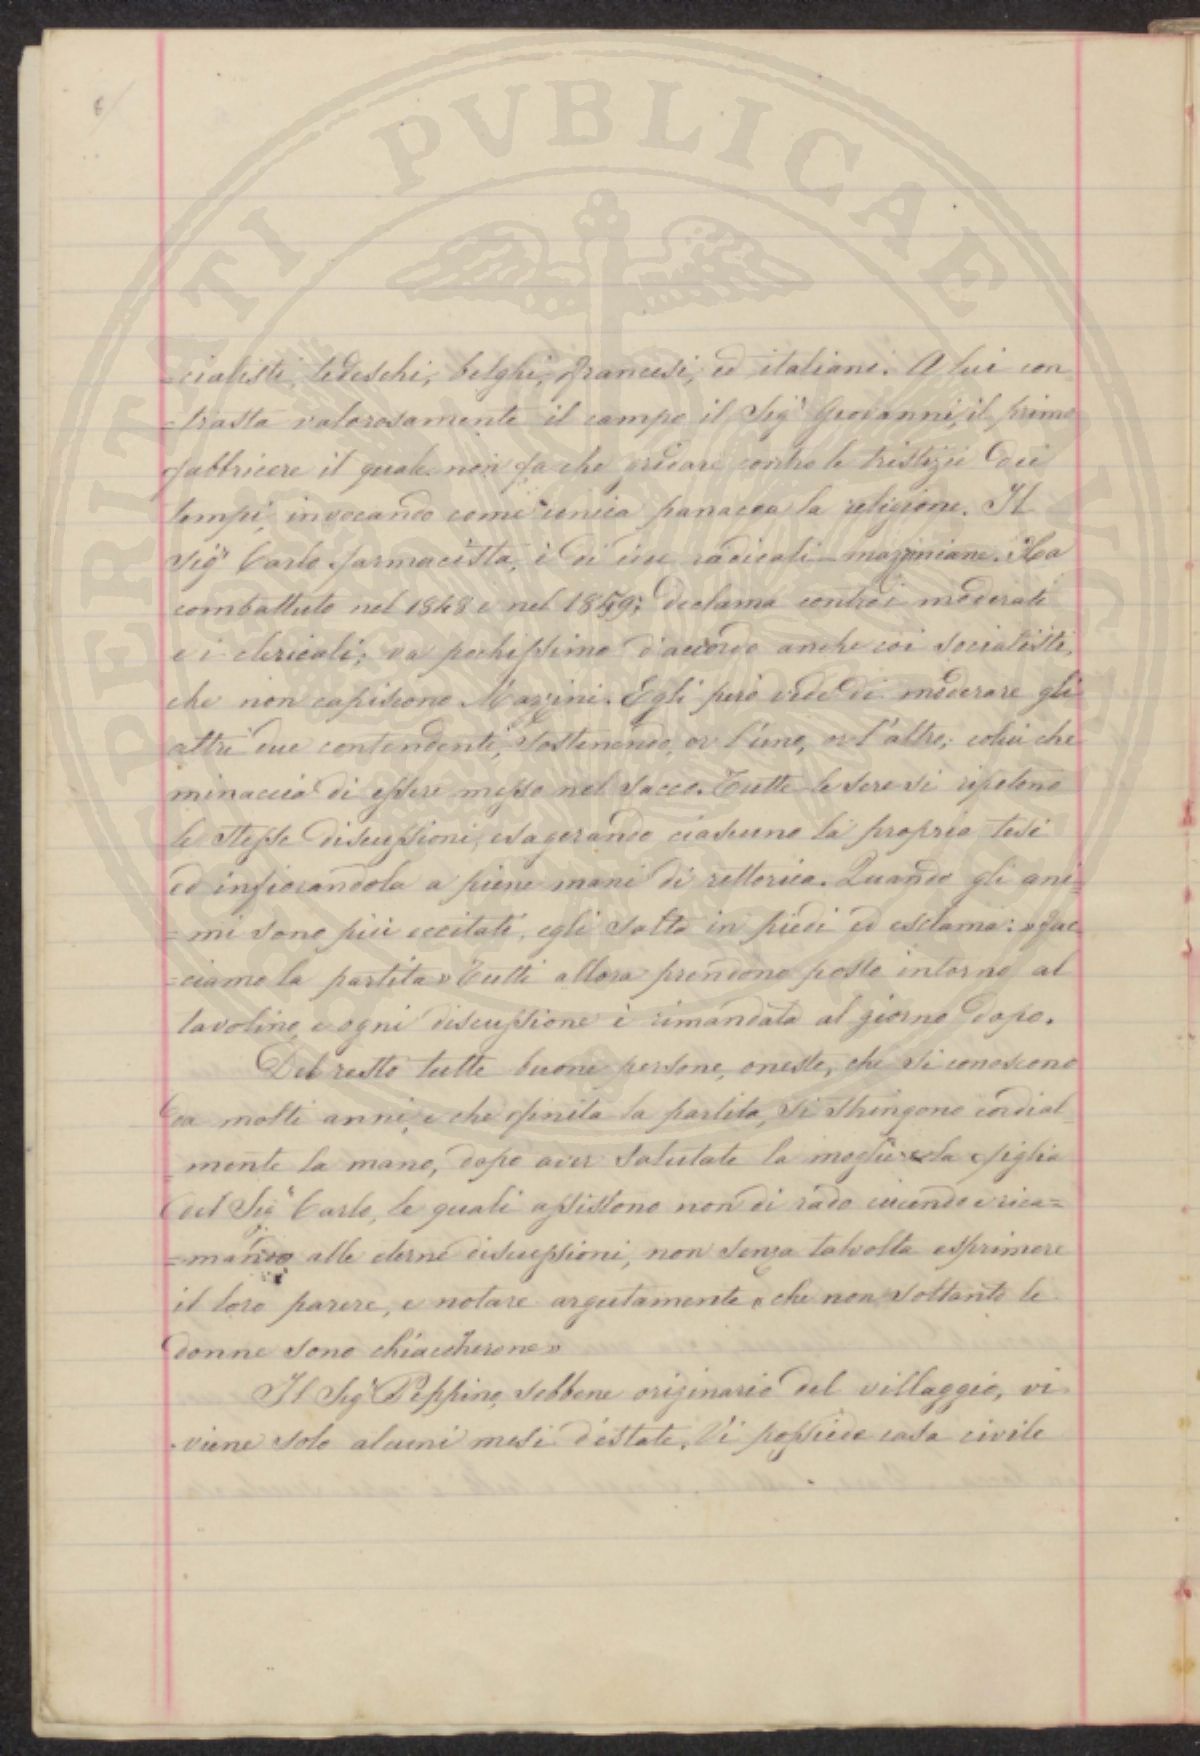 6/
=cialisti, tedeschi, belghi, francesi, ed italiani. A lui con
=trasta valorosamente il campo il Sigr Giovanni, il primo
fabbricere il quale non fa che gridare contro le tristizie dei
tempi, invocando come unica panacea la religione. Il
Sigr Carlo farmacista, è di idee radicali-mazziniane. Ha
combattuto nel 1848 e nel 1859; declama contro i moderati
e i clericali; va pochissimo d'accordo anche coi socialisti,
che non capiscono Mazzini. Egli però vede di moderare gli
altri due contendenti, sostenendo, or l'uno, or l'altro; colui che
minaccia di essere messo nel sacco. Tutte le sere si ripetono
le stesse discussioni, esagerando ciascuno la propria tesi
ed infiorandola a piene mani di rettorica. Quando gli ani=
=mi sono più eccitati, egli salta in piedi ed esclama: "Fac
=ciamo la partita" Tutti allora prendono posto intorno al
tavolino, e ogni discussione è rimandata al giorno dopo.
Del resto tutte buone persone, oneste, che si conoscono
da molti anni, e che finita la partita, si stringono cordial
=mente la mano, dopo aver salutate la moglie e la figlia
del Sigr Carlo, le quali assistono non di rado cucendo e rica=
=mando alle eterne discussioni, non senza talvolta esprimere
il loro parere, e notare argutamente "che non soltanto le
donne sono chiaccherone"
Il Sigr Peppino, sebbene originario del villaggio, vi
viene solo alcuni mesi d'estate. Vi possiede casa civile
PERITATI PVBLICAE